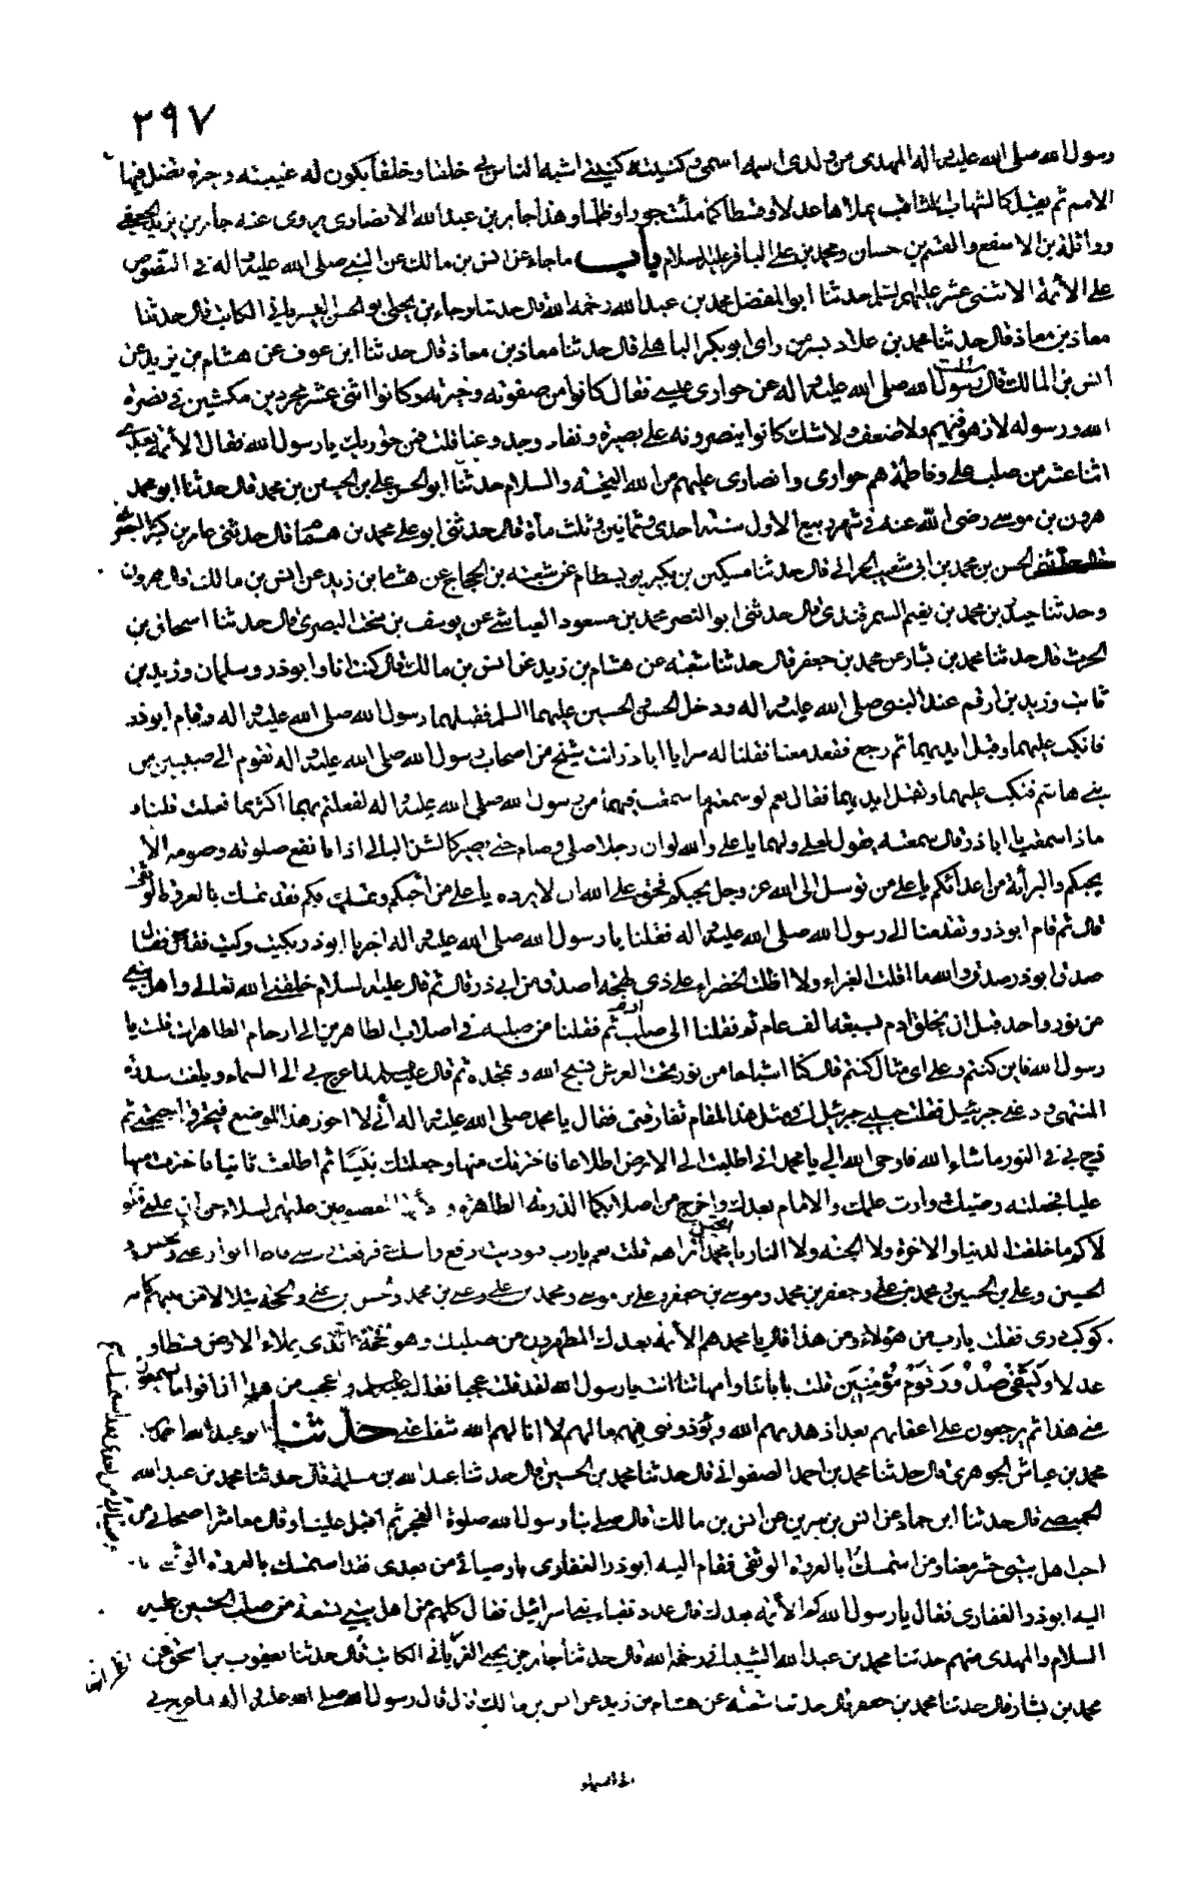 ٢٩٧
رسول الله صلى الله عليه واله المهدى من ولدى اسمه اسمى وكنيته كنيتى اشبه الناس بى خلقا وخلقا يكون له غيبته وحيرة تضل فيها
الامم ثم يقبل كالشهاب الثاقب يملاها عدلا وقسطا كما ملئت جورا وظلما وهذا جابر بن عبد الله الانصارى يروى عنه جابر بن يزيد الجعفى
وواثلة بن الاسقع والقسم بن حسان ومحمد بن على الباقر عليه السلام باب ما جاء عن انس بن مالك عن النبى صلى الله عليه واله فى النصوص
على الأئمة الاثنى عشر عليهم السلم حدثنا ابو المفضل محمد بن عبد الله رحمه الله قال حدثنا رجاء بن يحيى ابو الحسن العبرتانى الكاتب قال حدثنا
معاذ بن معاذ قال حدثنا محمد بن خلاد بسر من راى ابو بكر الباهلى قال حدثنا معاذ بن معاذ قال حدثنا ابن عوف عن هشام بن يزيد عن
انس بن المالك قال سئلت رسول الله صلى الله عليه واله عن حوارى عيسى فقال كانوا من صفوته وخيرته وكانوا اثنى عشر مجردين مكمشين فى نصرة
الله ورسوله لا زهو فيهم ولا ضعف ولا شك كانوا ينصرونه على بصيرة ونفاد وجد وعنا قلت فمن حواريك يا رسول الله فقال الأئمة بعدى
اثنا عشر من صلب على وفاطمة هم حوارى وانصارى عليهم من الله التحية والسلام حدثنا ابو الحسن على بن الحسين بن محمد قال حدثنا ابو محمد
هرون بن موسى رضى الله عنه فى شهر ربيع الاول سنة احدى وثمانين وثلث مأة قال حدثنى ابو على محمد بن همام قال حدثنى عامر بن كثير البصرى
الحسن بن محمد بن ابى شعيب الحرانى قال حدثنا مسكين بن بكير بو بسطام عن شعبة بن الحجاج عن هشام بن زيد عن انس بن مالك قال هرون
وحدثنا حيدر بن محمد بن نعيم السمرقندى قال حدثنى ابو النصر محمد بن مسعود العياشى عن يوسف بن سخت البصرى قال حدثنا اسحاق بن
الحرث قال حدثنا محمد بن بشار عن محمد بن جعفر قال حدثنا شعبة عن هشام بن زيد عن انس بن مالك قال كنت انا وابو ذر وسلمان وزيد بن
ثابت وزيد بن ارقم عند النبى صلى الله عليه واله ودخل الحسن والحسين عليهما السلم فقبلهما رسول الله صلى الله عليه واله وقام ابو ذر
فانكب عليهما وقبل ايديهما ثم رجع فقعد معنا فقلنا له سرا يا ابا ذر انت شيخ من اصحاب رسول الله صلى الله عليه واله تقوم الى صبيين من
بنى هاشم فتنكب عليهما وتقبل ايديهما فقال نعم لو سمعتم ما سمعت فيهما من رسول الله صلى الله عليه واله لفعلتم بهما اكثر مما فعلت قلنا و
ماذا سمعت يا ابا ذر قال سمعته يقول لعلى ولهما يا على والله لو ان رجلا صلى وصام حتى يصير كالشن البالى اذا ما نفع صلوته وصومه الا
بحبكم والبرائة من اعدائكم يا على من توسل الى الله عز وجل بحبكم فحق على الله ان لا يرده يا على من احبكم وتمسك بكم فقد تمسك بالعروة الوثقى
قال ثم قام ابو ذر وتقدمنا الى رسول الله صلى الله عليه واله فقلنا يا رسول الله صلى الله عليه واله اخبرنا ابو ذر بكيت وكيت فقال
صدق ابو ذر صدق والله ما اقلت الغبراء ولا اظلت الخضراء على ذى لهجة اصدق من ابى ذر قال ثم قال عليه السلام خلقنى الله تعالى واهل بيتى
من نور واحد قبل ان يخلق ادم بسبعة الف عام ثم نقلنا الى صلب ادم ثم نقلنا من صلبه فى اصلاب الطاهرين الى ارحام الطاهرات قلت يا
رسول الله فاين كنتم وعلى اى مثال كنتم قال كنا اشباحا من نور تحت العرش نسبح الله ونمجده ثم قال عليه السلم لما عرج بى الى السماء وبلغت سدرة
المنتهى ودعنى جبرئيل فقلت حبيبى جبرئيل افى مثل هذا المقام تفارقنى فقال يا محمد صلى الله عليه واله انى لا اجوز هذا الموضع فيحترق اجنحتى ثم
زج بى فى النور ما شاء الله فاوحى الله الى يا محمد انى اطلعت الى الارض اطلاعا فاخترتك منها وجعلتك نبيا ثم اطلعت ثانيا فاخترت منها
عليا فجعلته وصيك ووارث علمك والامام بعدك واخرج من اصلابكما الذرية الطاهرة و
لاكم ما خلقت الدنيا والاخرة ولا الجنة ولا النار يا محمد اتحب ان تراهم قلت نعم يارب فنوديت
الحسين وعلى بن الحسين ومحمد بن على وجعفر بن محمد وموسى بن جعفر وعلى بن موسى ومحمد بن على وعلى بن محمد
كوكب درى فقلت يارب من هؤلاء ومن هذا قال يا محمد هم الأئمة بعدك المطهرون من صلبك وهو الحجة الذى يملاء الارض قسطا و
عدلا ويشفى صدور قوم مؤمنين قلت بابائنا وامهاتنا انت يا رسول الله لقد قلت عجبا فقال عليه السلم واعجب من هذا ان اقواما يسمعون
منى هذا ثم يرجعون على اعقابهم بعد اذ هديهم الله ويؤذونى فيهم ما لهم لا انالهم الله شفاعتى حدثنا ابو عبد الله احمد
محمد بن عياش الجوهرى قال حدثنا محمد بن احمد الصفوانى قال حدثنا محمد بن الحسين قال حدثنا عبد الله بن مسلمة قال حدثنا محمد بن عبد الله
الحمصى قال حدثنا ابن حماد عن انس بن سيرين عن انس بن مالك قال صلى بنا رسول الله صلوة الفجر ثم اقبل علينا وقال معاشر اصحابى من
احب اهل بيتى حشر معنا ومن استمسك بالعروة الوثقى فقام اليه ابو ذر الغفارى
اليه ابو ذر الغفارى فقال يا رسول الله كم الأئمة بعدك قال عدد نقباء بنى اسرائيل فقال كلهم من اهل بيتى تسعة من صلب الحسين عليه
السلام والمهدى منهم حدثنا محمد بن عبد الله الشيبانى رحمه الله قال حدثنا رجاء بن يحيى العبرتانى الكاتب قال حدثنا يعقوب بن اسحق عن
محمد بن بشار قال حدثنا محمد بن جعفر قال حدثنا شعبة عن هشام بن زيد عن انس بن مالك قال قال رسول الله صلى الله عليه واله لما عرج بى
الى السماء